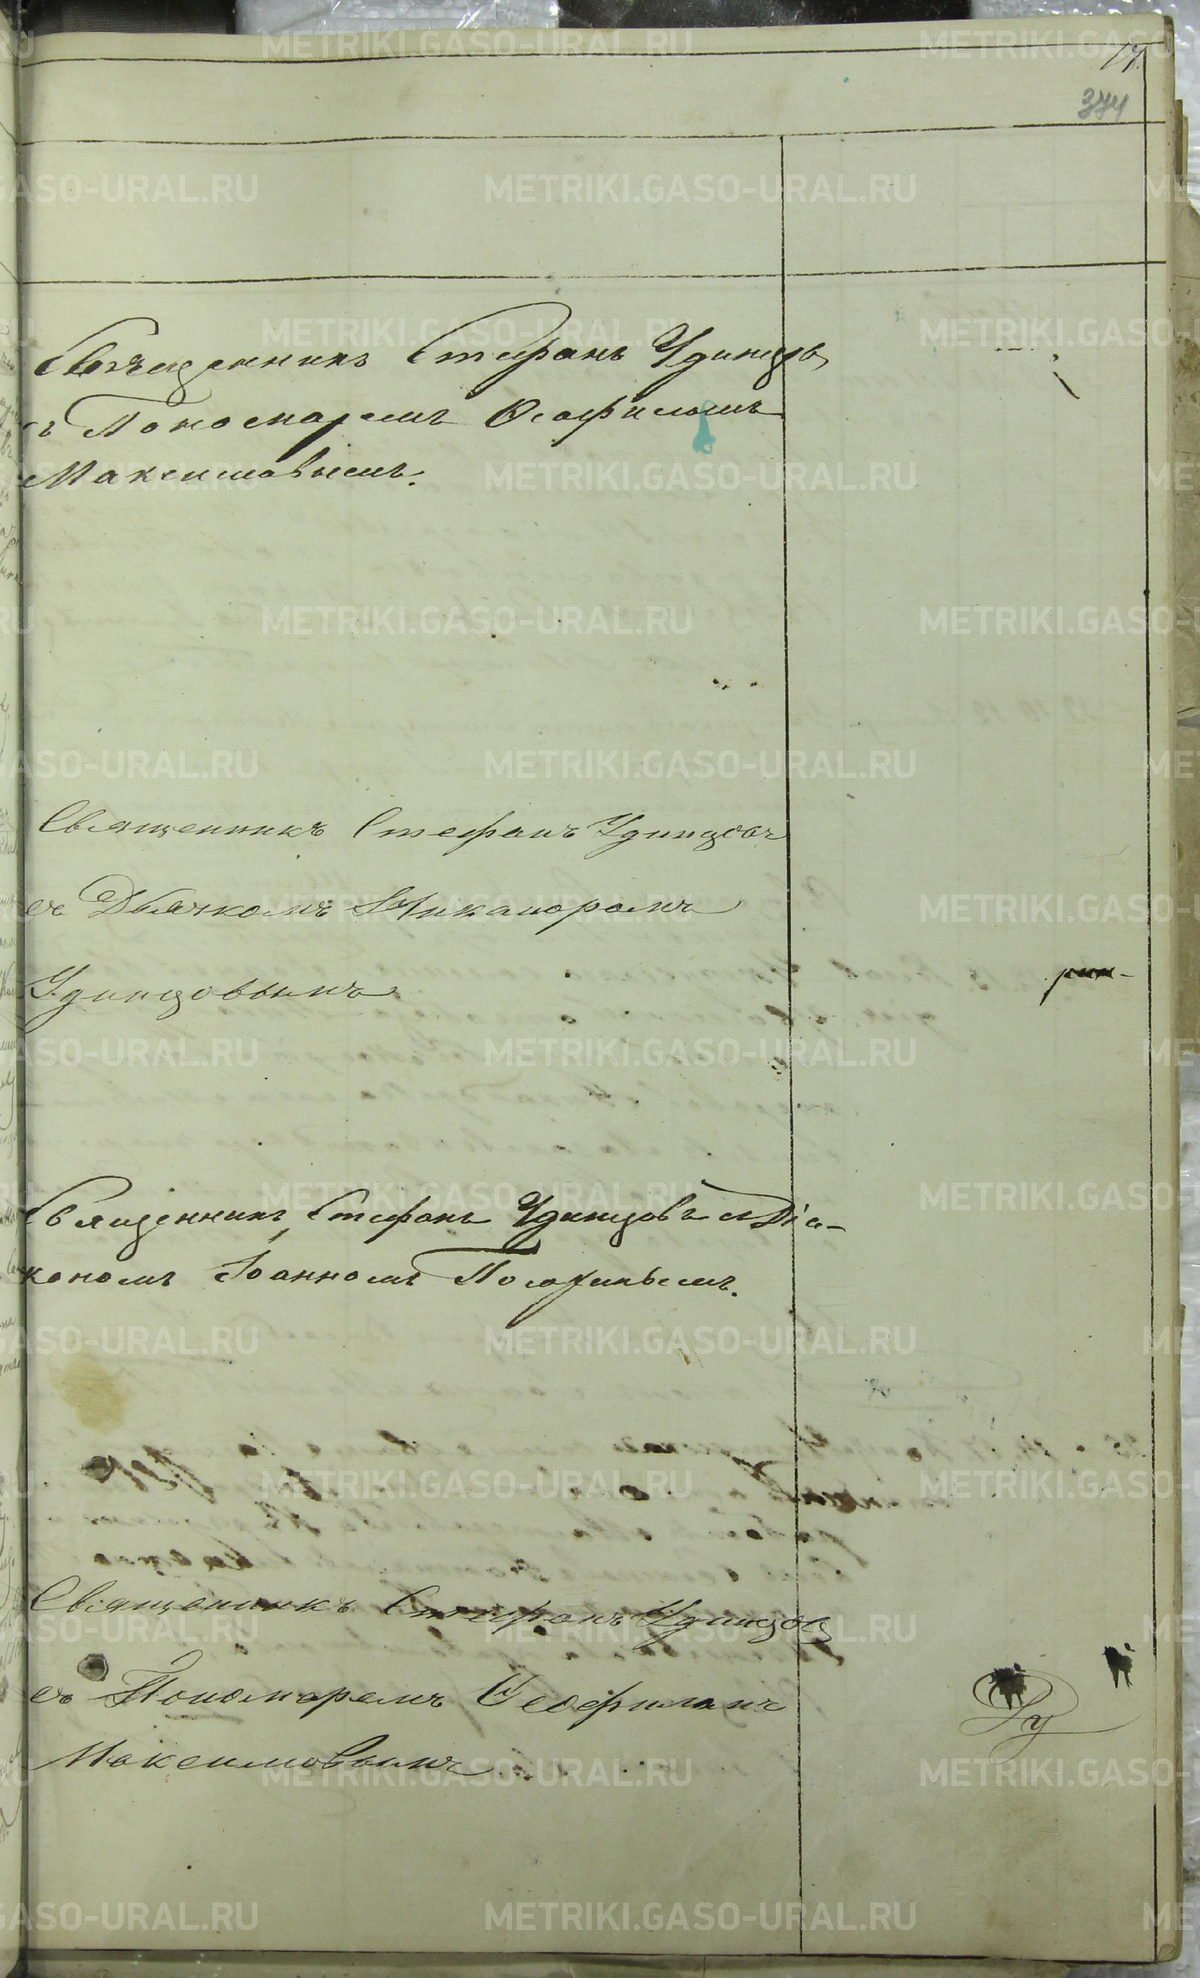 17.
374
Священникъ Стефанъ Удинцовъ
съ Пономаремъ Ѳеофиломъ
Максимовымъ.
Священникъ Стефанъ Удинцовъ
съ Дьячкомъ Никаноромъ
Удинцовымъ
Священникъ Стефанъ Удинцовъ с Діа-
кономъ Іоанномъ
Священникъ Стефанъ Удинцовъ
съ Пономаремъ Ѳеофиломъ
Максимовымъ
рин-
Ру
METRIKI.GASO-URAL.RU